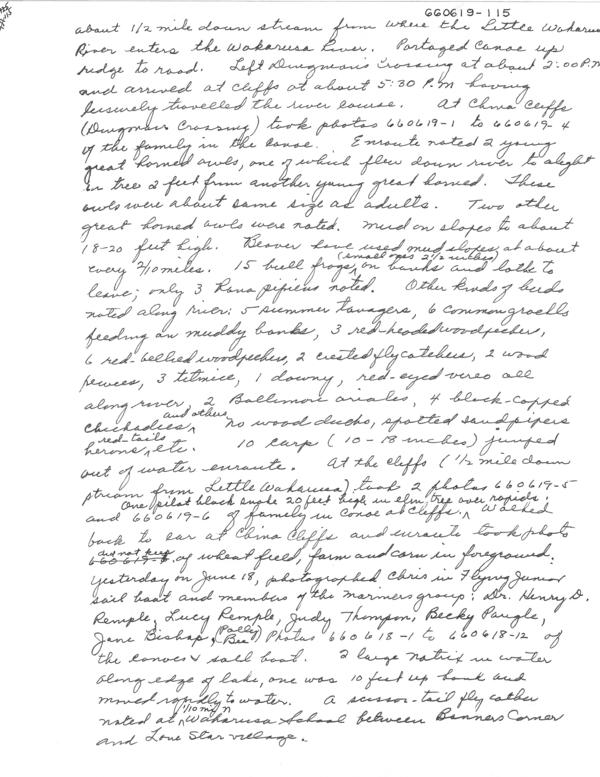 660619-115
about 1/2 mile down stream from where the Little Wakarusa
River enters the Wakarusa River. Portaged Canoe up
ridge to road. Left Dingman's Crossing at about 2:00 P.M
and arrived at Cliffs at about 5:30 P.M having
leisurely travelled the river course. At China Cliffs
(Dingman's Crossing) took photos 660619-1 to 660619-4
of the family in the canoe. Enroute noted 2 young
great horned owls, one of which flew down river to alight
in tree 2 feet from another young great horned. These
owls were about same size as adults. Two other
great horned owls were noted. Mud on slopes to about
18-20 feet high. Beaver have used mud slopes at about
(small ones 2 1/2 inches)
every 2/10 miles. 15 bull frogs, on banks and lothe to
leave; only 3 Rana pipiens noted. Other kinds of birds
noted along river: 5 summer tanagers, 6 common grackles
feeding on muddy banks, 3 red-headed woodpeckers,
6 red-bellied woodpeckers, 2 crested flycatchers, 2 wood
pewees, 3 titmice, 1 downy, red-eyed vireo all
along river, 2 Baltimore orioles, 4 black-capped
and others
chickadees, no wood ducks, spotted sandpipers
red-tails
herons, etc. 10 carp (10-18 inches) jumped
out of water enroute. At the cliffs (1/2 mile down
stream from Little Wakarusa) took 2 photos 660619-5
One pilot black snake 20 feet high in elm tree over rapids;
and 660619-6 of family in canoe at Cliffs. Walked
back to car at China Cliffs and enroute took photo
did not keep
660619-6 of wheat field, farm and corn in foreground.
Yesterday on June 18, photographed Chris in Flying Junior
sail boat and members of the mariners group: Dr. Henry D.
Remple, Lucy Remple, Judy Thompson, Becky
Jane Bishop, (Polly Bee?) Photos 660618-1 to 660618-12 of
the canoes & sail boat. 2 large natrix in water
along edge of lake, one was 10 feet up bank and
moved rapidly to water. A scissor-tail fly catcher
1/10 mi N
noted at Wakarusa School between Banners Corner
and Lone Star village.